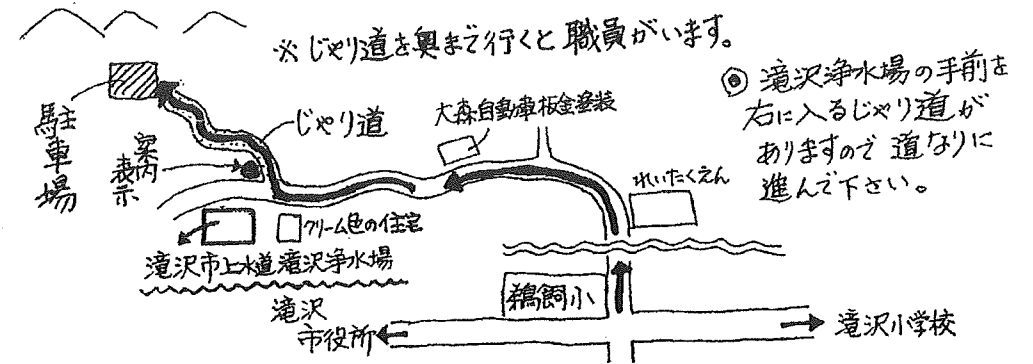 ※じゃり道を奥まで行くと職員がいます。
◎ 滝沢浄水場の手前を
右に入るじゃり道が
ありますので道なりに
進んで下さい。
大森自動車板金塗装
じゃり道
駐車場
案内
表示
れいたくえん
クリーム色の住宅
滝沢市上水道滝沢浄水場
鵜飼小
滝沢
市役所
滝沢小学校